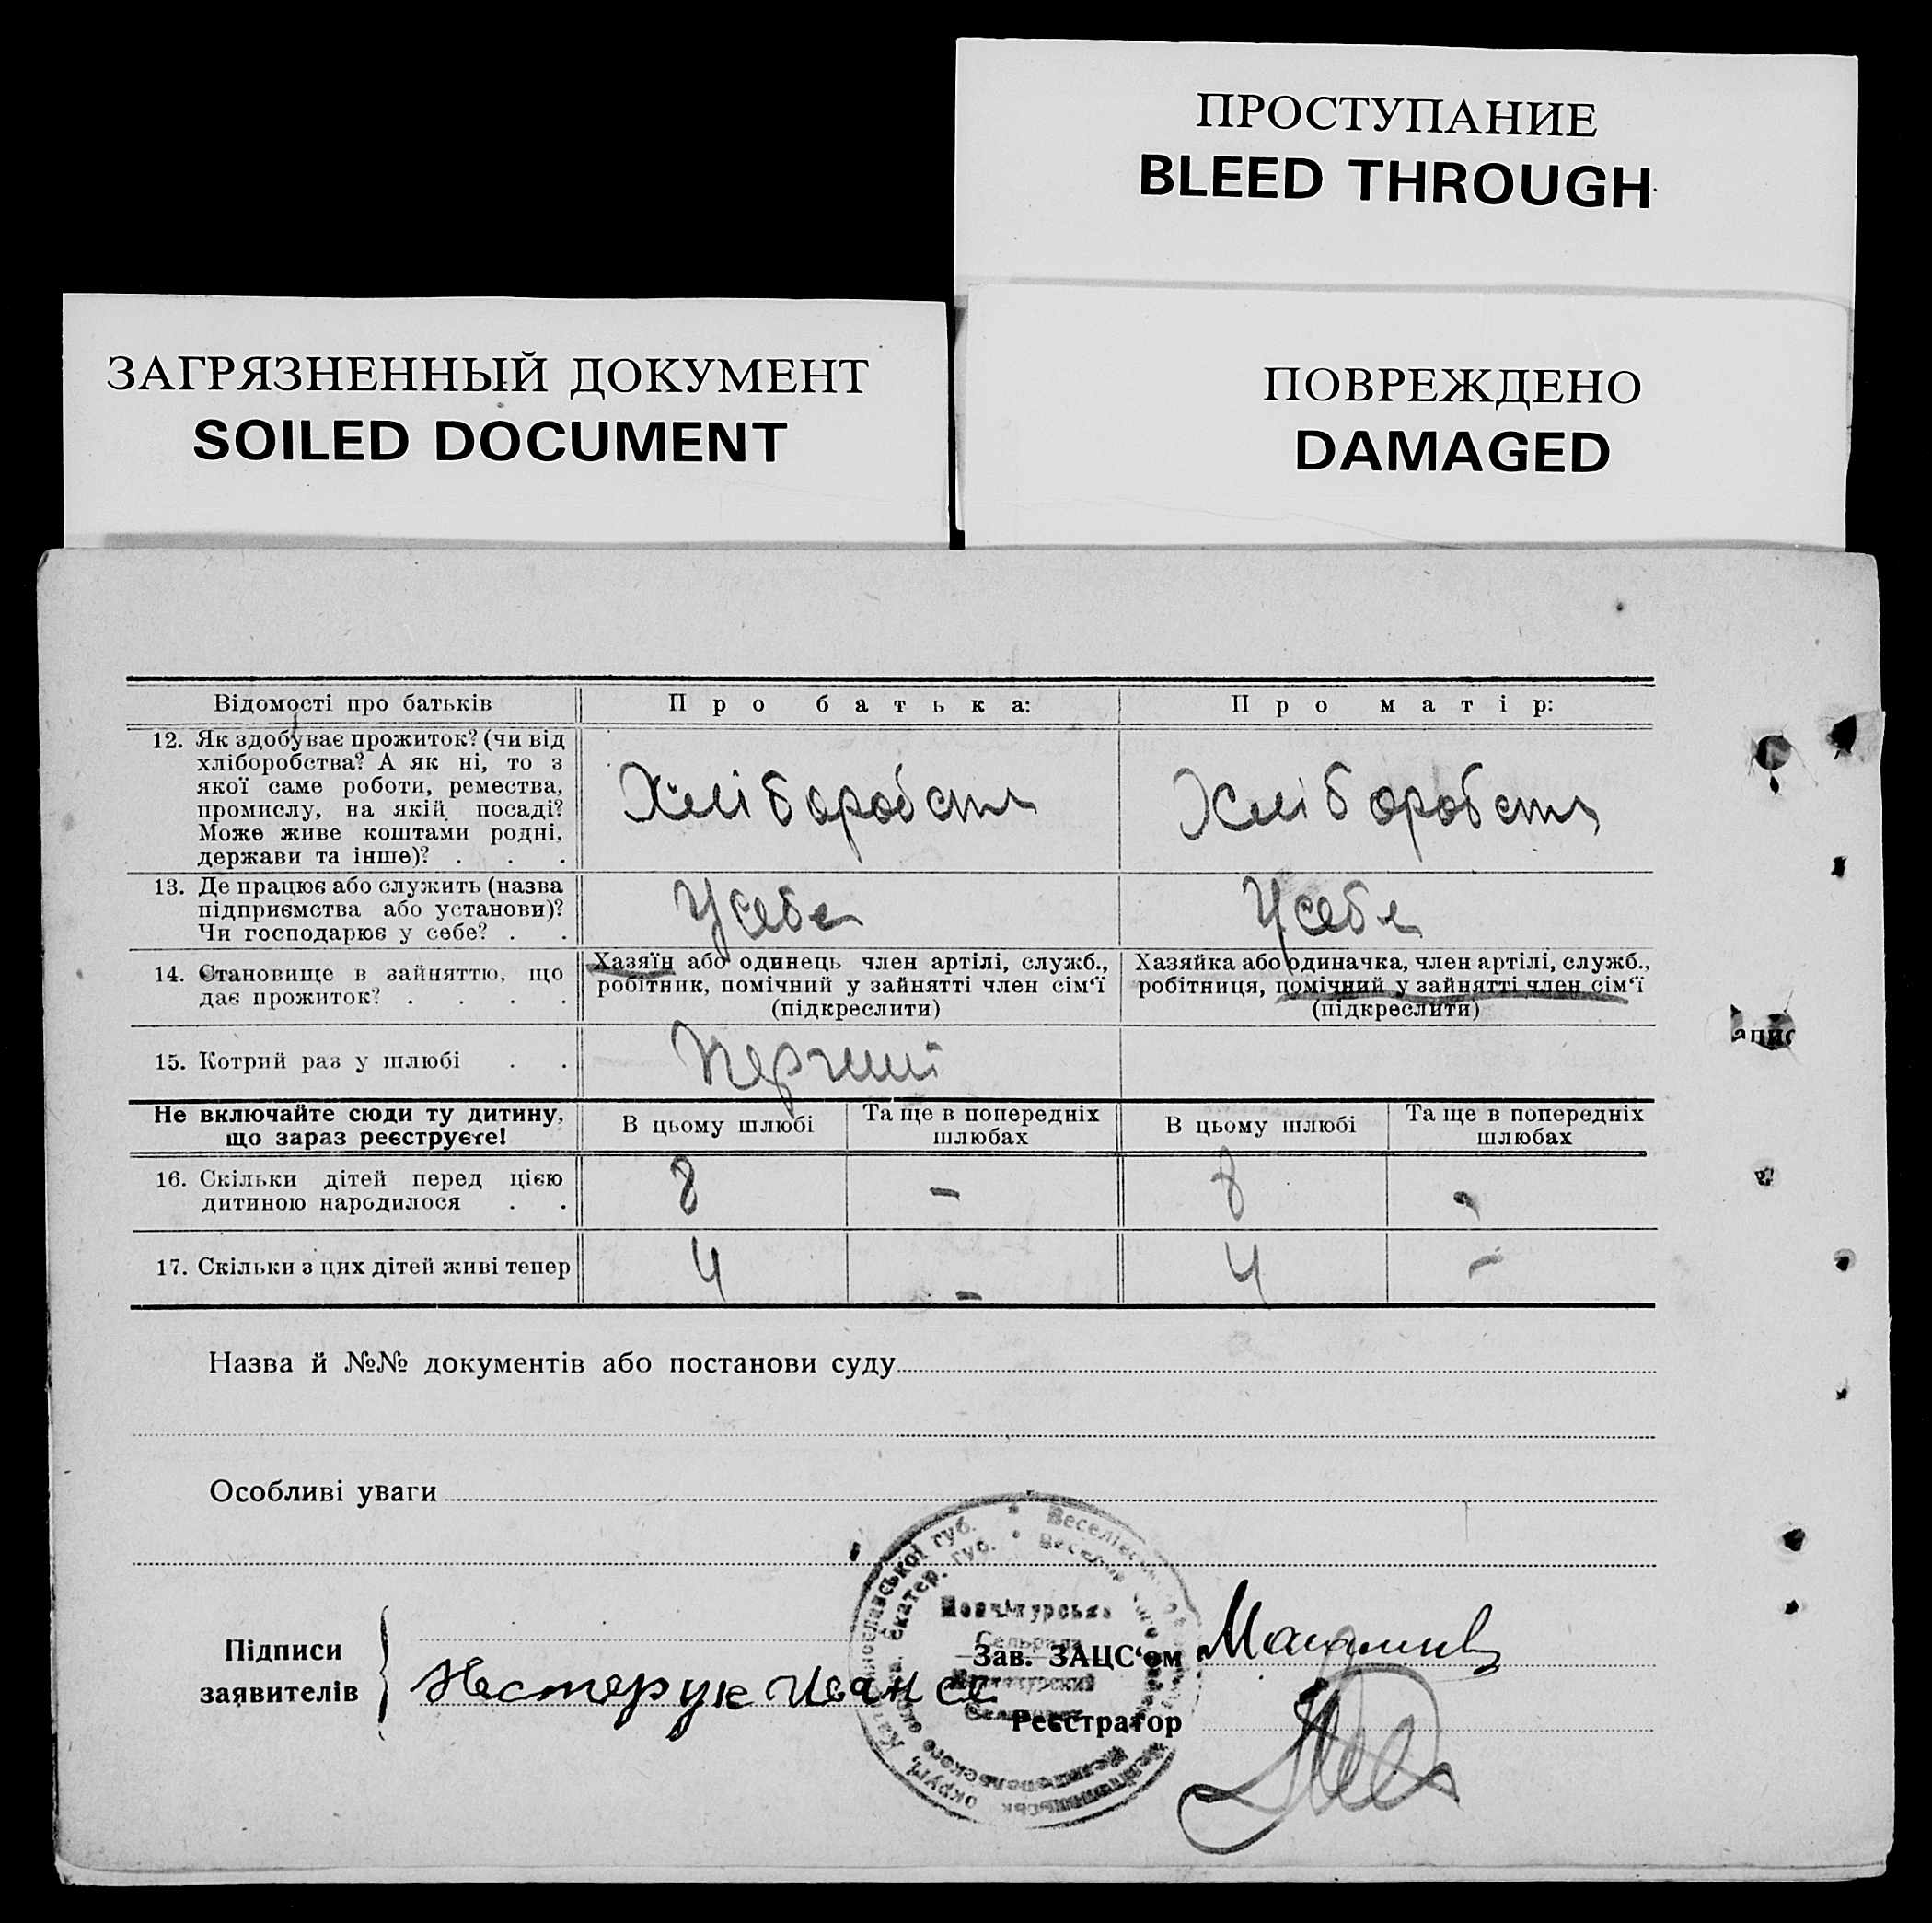 ПРОСТУПАНИЕ
BLEED THROUGH
ЗАГРЯЗНЕННЫЙ ДОКУМЕНТ
SOILED DOCUMENT
ПОВРЕЖДЕНО
DAMAGED
Відомості про батьків
Про батька:
Про матір:
12. Як здобуває прожиток? (чи від
хліборобства? А як ні, то з
якої саме роботи, ремества,
промислу, на якій посаді?
Може живе коштами родні,
держави та інше)? . . .
Хліборобств
Хліборобств
13. Де працює або служить (назва
підприємства або установи)?
Чи господарює у себе? . .
У себе
У себе
14. Становище в зайняттю, що
дає прожиток? . . . .
Хазяїн або одинець член артілі, служб.,
робітник, помічний у зайнятті член сім‘ї
(підкреслити)
Хазяйка або одиначка, член артілі, служб.,
робітниця, помічний у зайнятті член сім‘ї
(підкреслити)
15. Котрий раз у шлюбі . .
Перший
Не включайте сюди ту дитину,
що зараз реєструєте!
В цьому шлюбі
Та ще в попередніх
шлюбах
В цьому шлюбі
Та ще в попередніх
шлюбах
16. Скільки дітей перед цією
дитиною народилося . .
8
-
8
-
17. Скільки з цих дітей живі тепер
4
-
4
-
апис
Назва й №№ документів або постанови суду
Особливі уваги
Підписи
заявителів
Нестерук Иван
Зав. ЗАЦС‘ом
Реєстратор